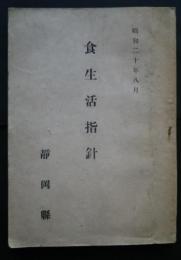 昭和二十年八月
食生活指針
静岡縣